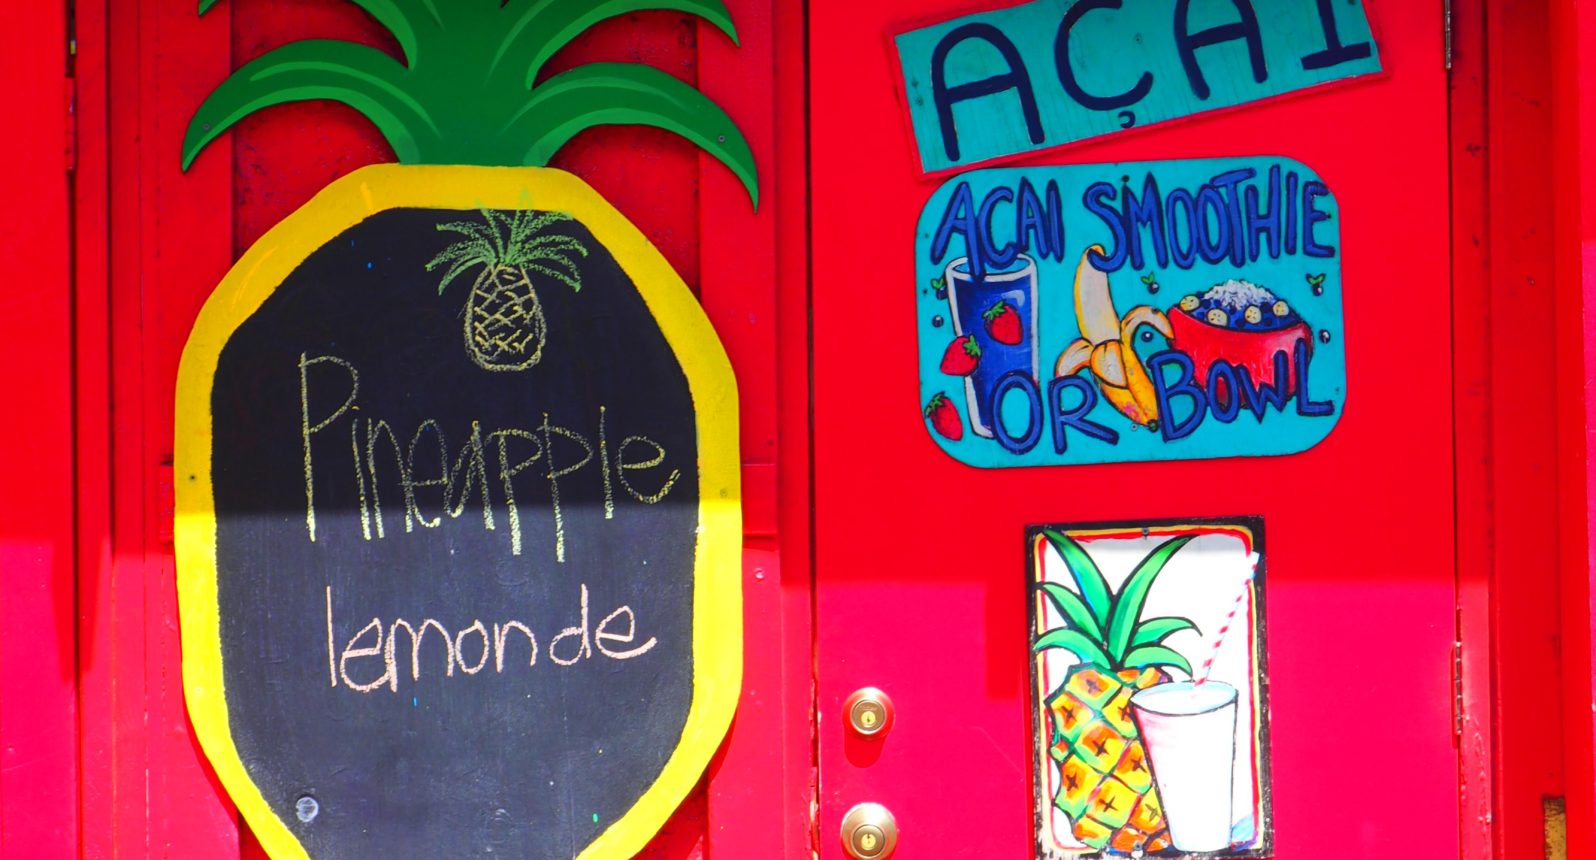 Pineapple
lemonde
AÇAI
AÇAI SMOOTHIE
OR BOWL